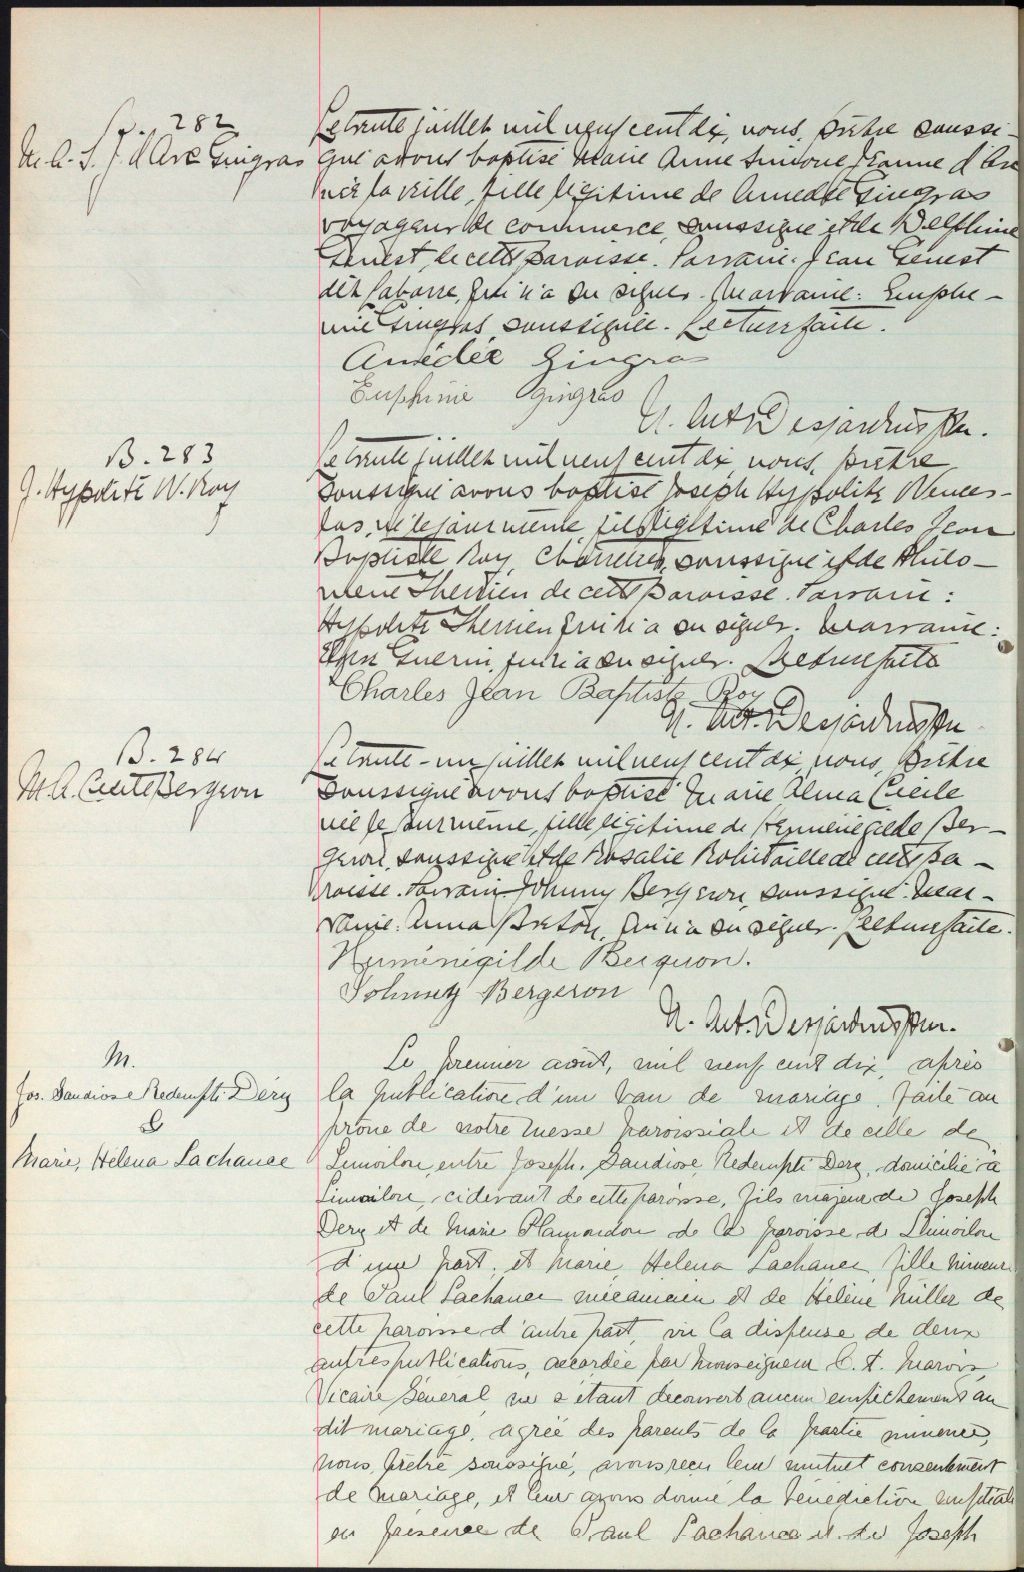 B. 282
M. A. S. J. d'Arc Gingras
Le trente juillet mil neuf cent dix, nous, prêtre soussi-
gné avons baptisé Marie Anne Simone Jeanne d'Arc
née la veille, fille légitime de Amédée Gingras
voyageur de commerce, soussigné et de Delphine
Genest, de cette paroisse. Parrain: Jean Genest
dit Labarre, qui n'a su signer. Marraine: Euphé-
mie Gingras soussignée. Lecture faite.
Amédée Gingras
Euphémie Gingras
Ant. Desjardins Ptr.
B. 283
J. Hypolite W. Roy
Le trente juillet mil neuf cent dix, nous, prêtre
soussigné avons baptisé Joseph Hypolite Wences-
las, né le jour même, fils légitime de Charles Jean
Baptiste Roy, charretier, soussigné et de Philo-
mène Therrien de cette paroisse. Parrain:
Hypolite Therrien qui n'a su signer. Marraine:
Guerin, qui n'a su signer. Lecture faite
Charles Jean Baptiste Roy
Ant. Desjardins Ptr
B. 284
M. A. Cecile Bergeron
Le trente-un juillet mil neuf cent dix, nous, prêtre
soussigné avons baptisé Marie Alma Cécile
née le jour même, fille légitime de Herménégilde Ber-
geron, soussigné et de Rosalie Robitaille de cette pa-
roisse. Parrain: Johnny Bergeron, soussigné. Mar-
raine: Anna Breton, qui n'a su signer. Lecture faite.
Herménégilde Bergeron.
Johnney Bergeron
Ant. Desjardins Ptr.
M.
Jos. Gaudiose Redempti Déry
&
Marie, Héléna Lachance
Le premier août, mil neuf cent dix, après
la publication d'un ban de mariage faite au
prône de notre messe paroissiale et de celle de
Limoilou, entre Joseph, Gaudiose Redempti Dery, domicilié à
Limoilou, cidevant de cette paroisse, fils majeur de Joseph
Dery et de Marie Plamondon de la paroisse de Limoilou
d'une part; et Marie Helena Lachance, fille mineure
de Paul Lachance mécanicien et de Hélène Miller de
cette paroisse d'autre part, vu la dispense de deux
autres publications, accordée par Monseigneur C. A. Marois
Vicaire Général, ne s'étant découvert aucun empêchement au
dit mariage, agréé des parents de la partie mineure,
nous, prêtre soussigné, avons reçu leur mutuel consentement
de mariage, et leur avons donné la bénédiction nuptiale
en présence de Paul Lachance et de Joseph